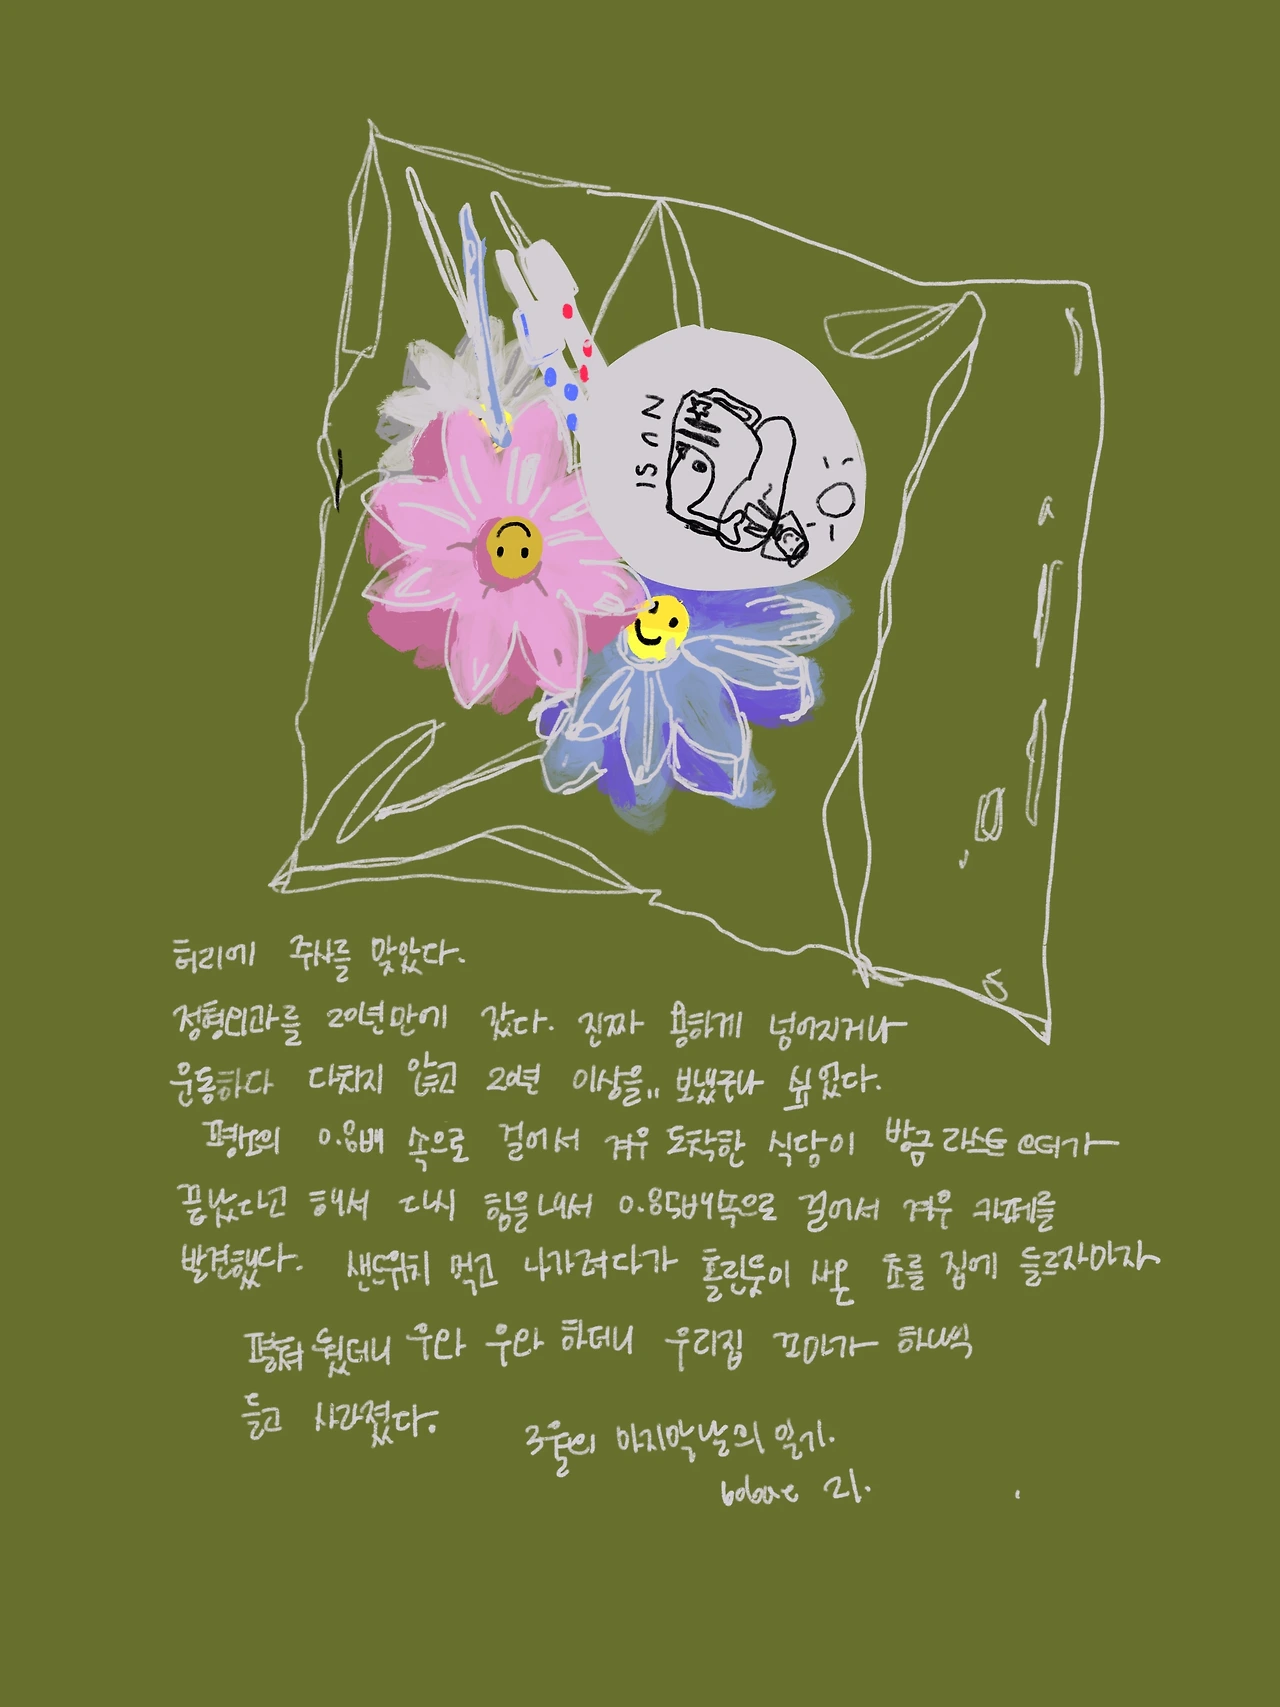 NUSI
허리에 주사를 맞았다.
정형외과를 20년만에 갔다. 진짜 용하게 넘어지거나
운동하다 다치지 않고 20년 이상을.. 보냈구나 싶었다.
평소의 0.8배 속으로 걸어서 겨우 도착한 식당이 방금 라스트 오더가
끝났다고 해서 다시 힘을내서 0.85배속으로 걸어서 겨우 카페를
발견했다. 샌드위치 먹고 나가려다가 홀린듯이 사온 초를 집에 들르자마자
펼쳐 뒀더니 우와 우와 하더니 우리집 꼬마가 하나씩
들고 사라졌다.
3월의 마지막날의 일기.
bobae 21.